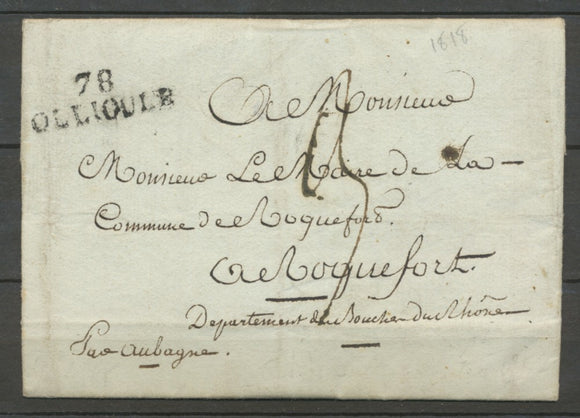 1818
78
OLLIOULE
A Monsieur
Monsieur Le Maire de La
Commune de Roquefort
A Roquefort.
Departement des Bouches du Rhône
Par aubagne.